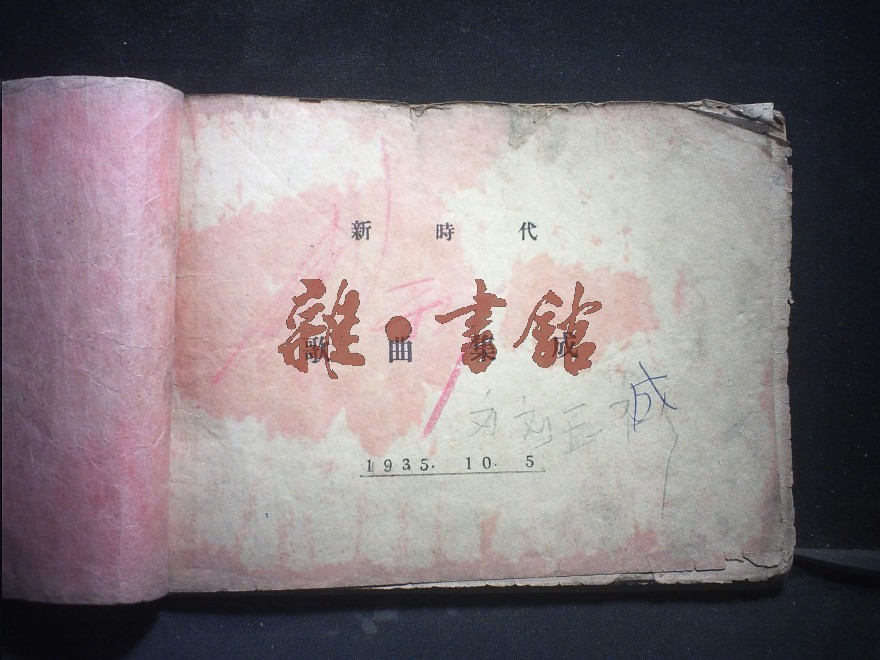 新時代
雜·書館
歌曲集成
成
1935. 10. 5